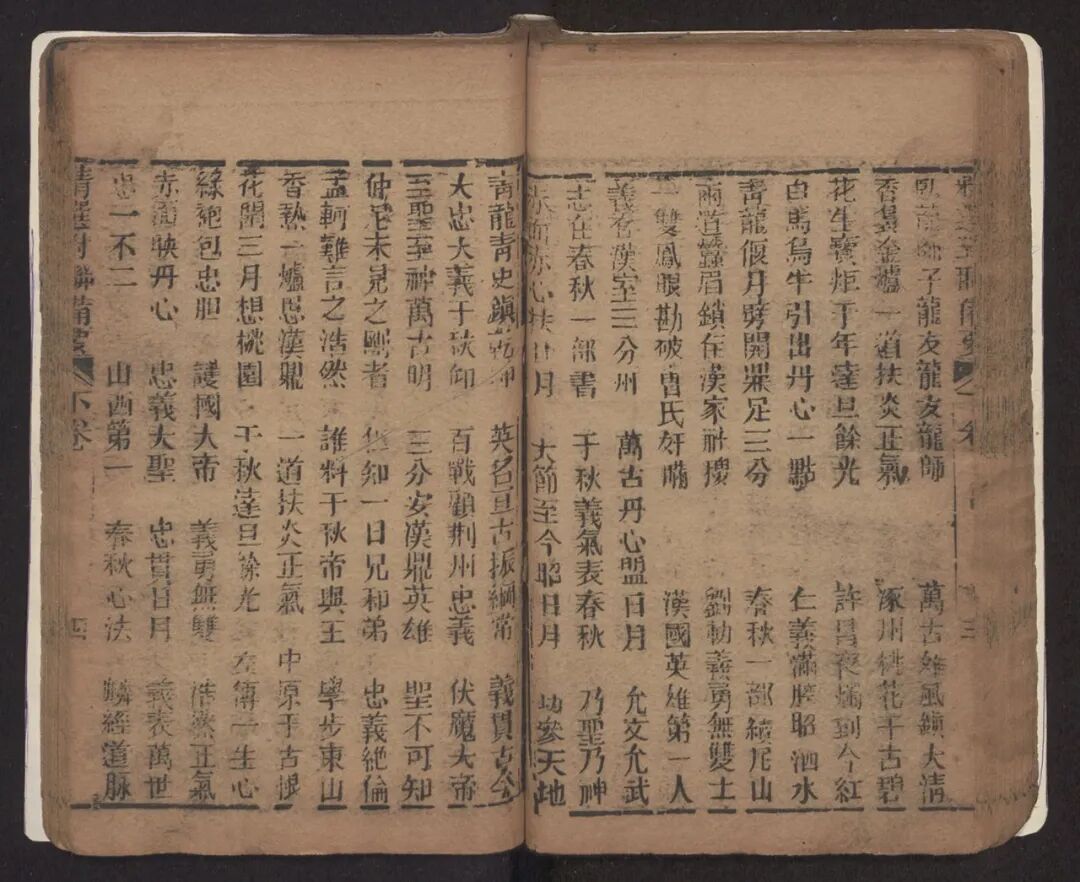 子龍友龍友龍師 萬古雄風鎮大清
香裊金爐一道扶炎正氣 涿州桃花千古碧
花生寶炬千年達旦餘光 許昌夜燭到今紅
白馬烏牛引出丹心一點 仁義滿腔昭泗水
青龍偃月劈開鼎足三分 春秋一部續尼山
兩道蠶眉鎖住漢家社稷 義勇無雙士
一雙鳳眼勘破曹氏奸瞞 漢國英雄第一人
義在漢室三分州 萬古丹心盟日月 允文允武
志在春秋一部書 千秋義氣表春秋 乃聖乃神
赤面赤心扶日月 大節至今昭日月 功參天地
青龍青史鎮乾坤 英名亘古振綱常 義貫古今
大忠大義千秋仰 百戰顧荊州忠義 伏魔大帝
至聖至神萬古明 三分安漢鼎英雄 聖不可知
仲尼未見之剛者 但知一日兄和弟 忠義絕倫
孟軻難言之浩然 誰料千秋帝與王 學步東山
香熱一爐思漢鼎 一道扶炎正氣 中原千古恨
花開三月想桃園 千秋達旦餘光 左傳一生心
綠袍包忠胆 護國大帝 義勇無雙 浩然正氣
赤面映丹心 忠義大聖 忠貫日月 義表萬世
忠一不二 山西第一 春秋心法 麟經道脉
精選對聯備要 下卷 四